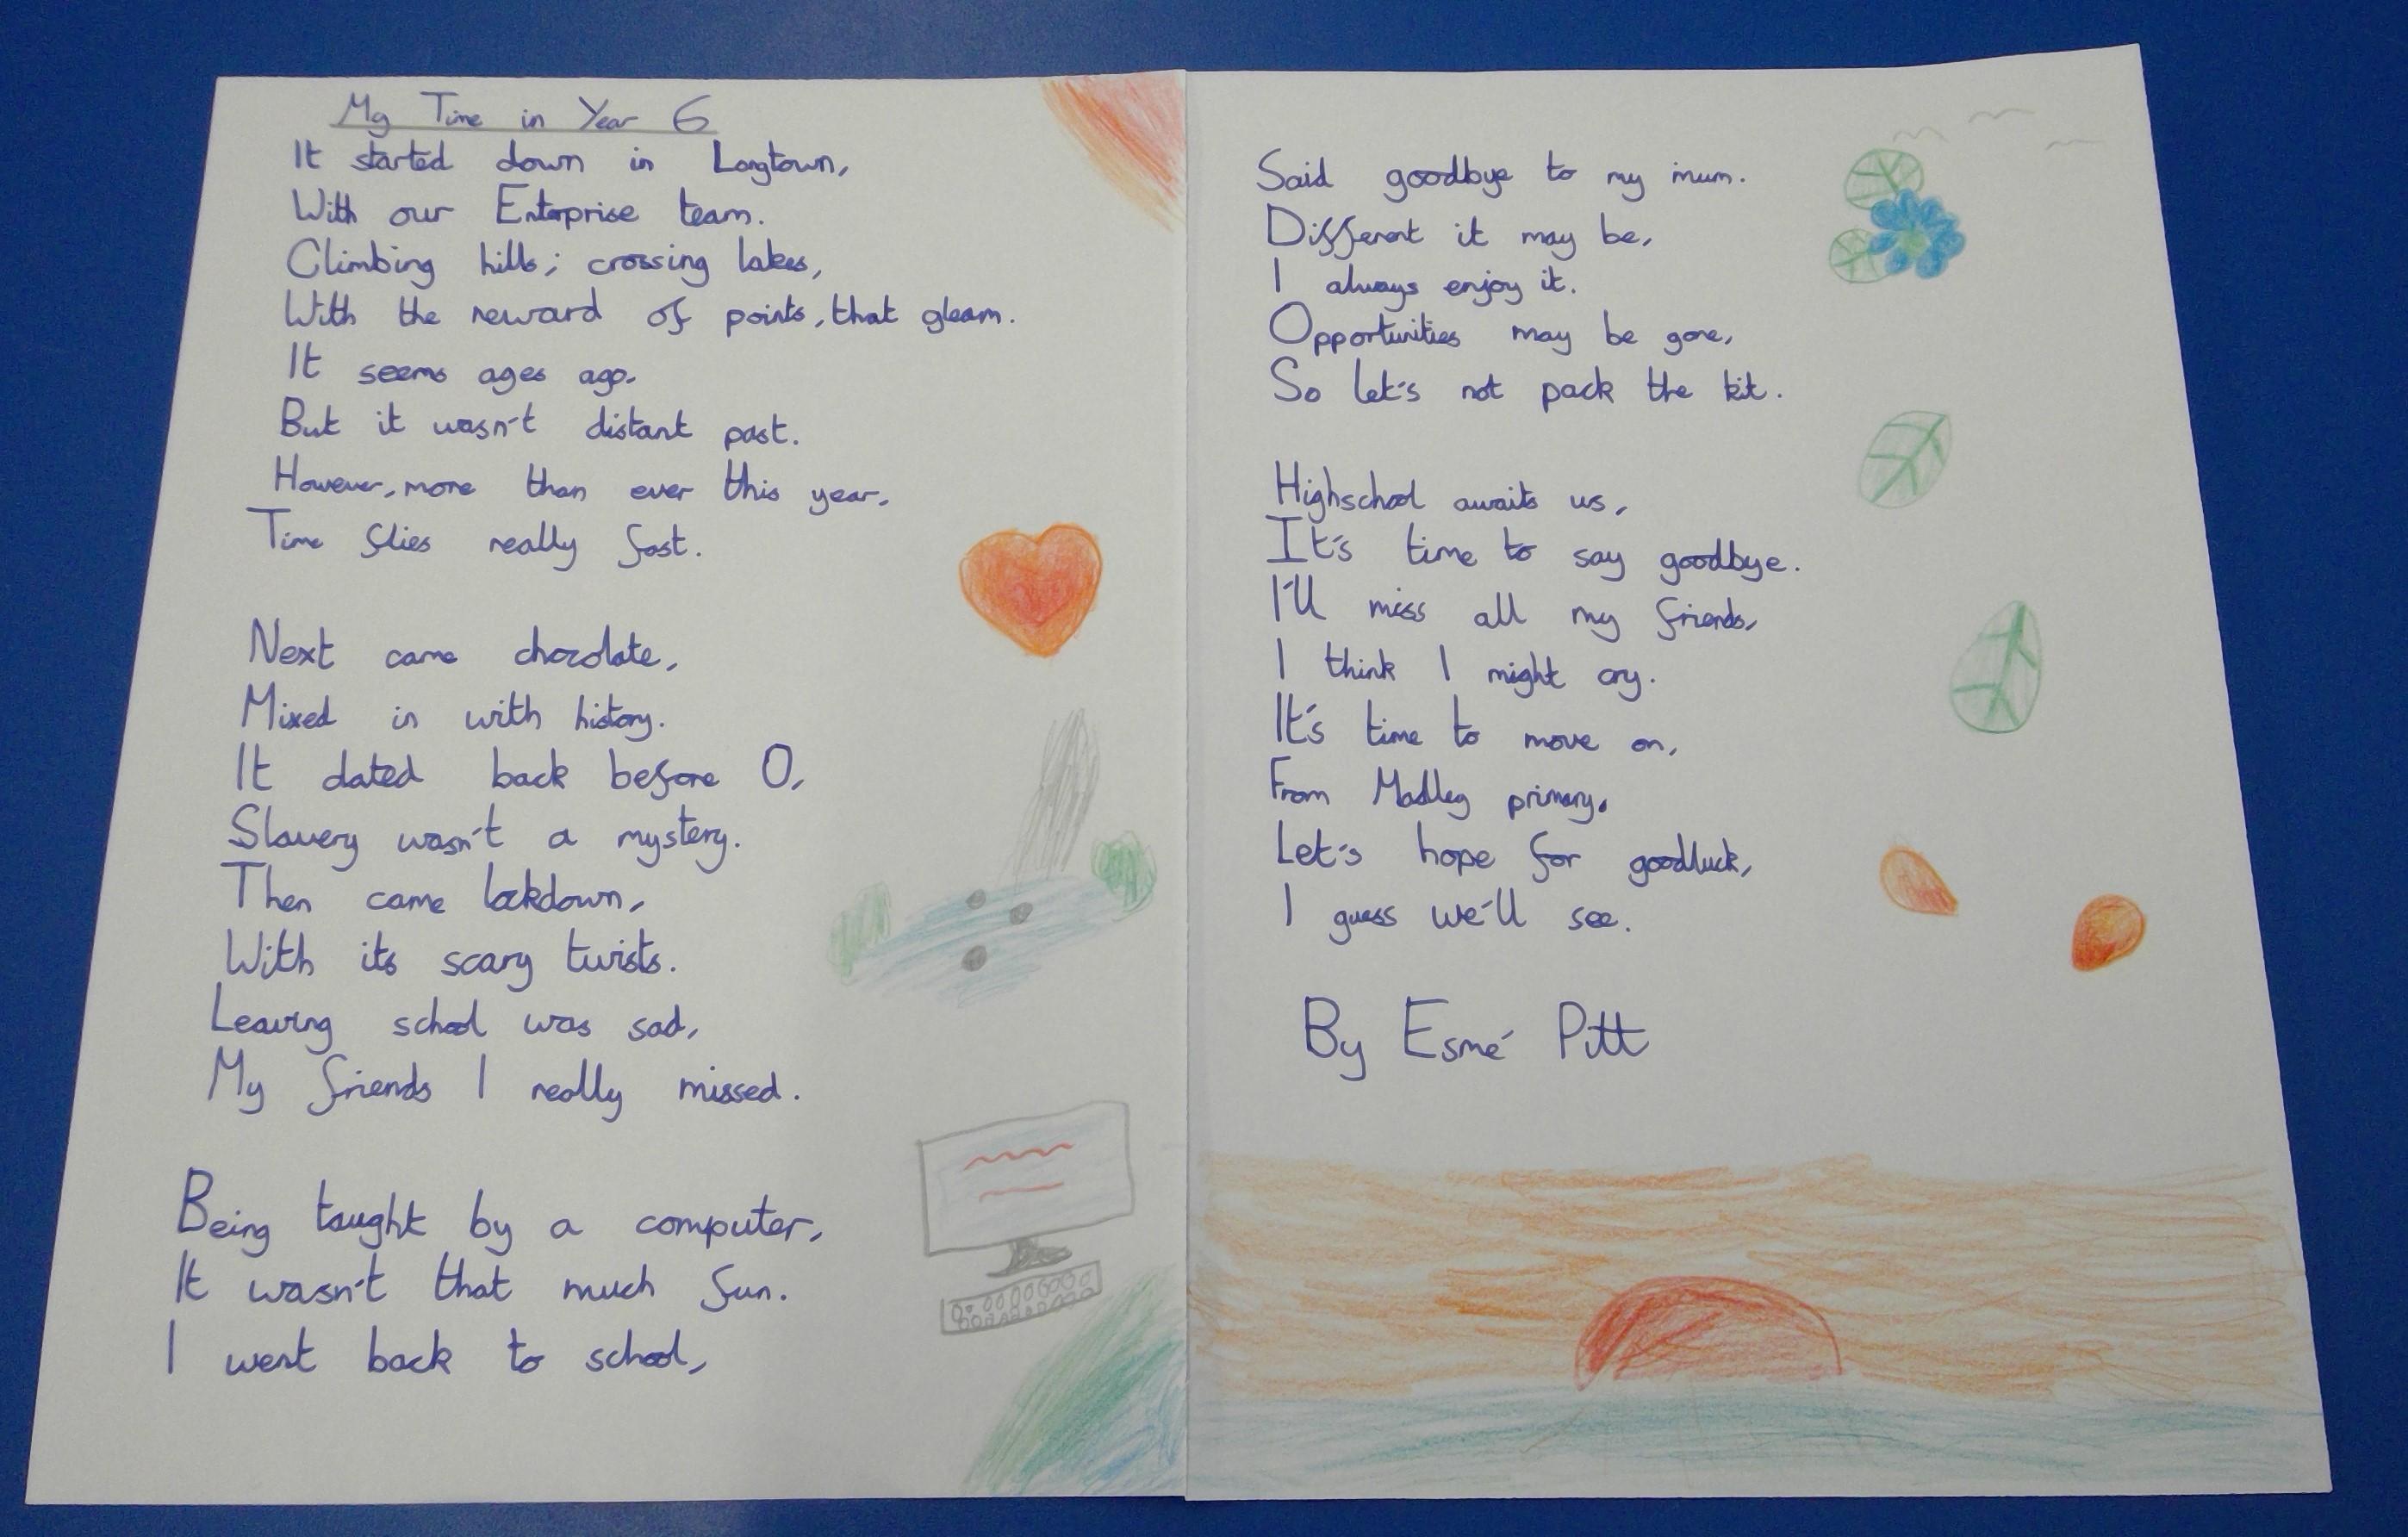 My Time in Year 6
It started down in Longtown,
With our Enterprise team.
Climbing hills; crossing lakes,
With the reward of points, that gleam.
It seems ages ago,
But it wasn't distant past.
However, more than ever this year,
Time flies really fast.
Next came chocolate,
Mixed in with history.
It dated back before 0,
Slavery wasn't a mystery.
Then came lockdown,
With its scary twists.
Leaving school was sad,
My friends I really missed.
Being taught by a computer,
It wasn't that much fun.
I went back to school,
Said goodbye to my mum.
Different it may be,
I always enjoy it.
Opportunities may be gone,
So let's not pack the kit.
Highschool awaits us,
It's time to say goodbye.
I'll miss all my friends,
I think I might cry.
It's time to move on,
From Madley primary.
Let's hope for goodluck,
I guess we'll see.
By Esmé Pitt